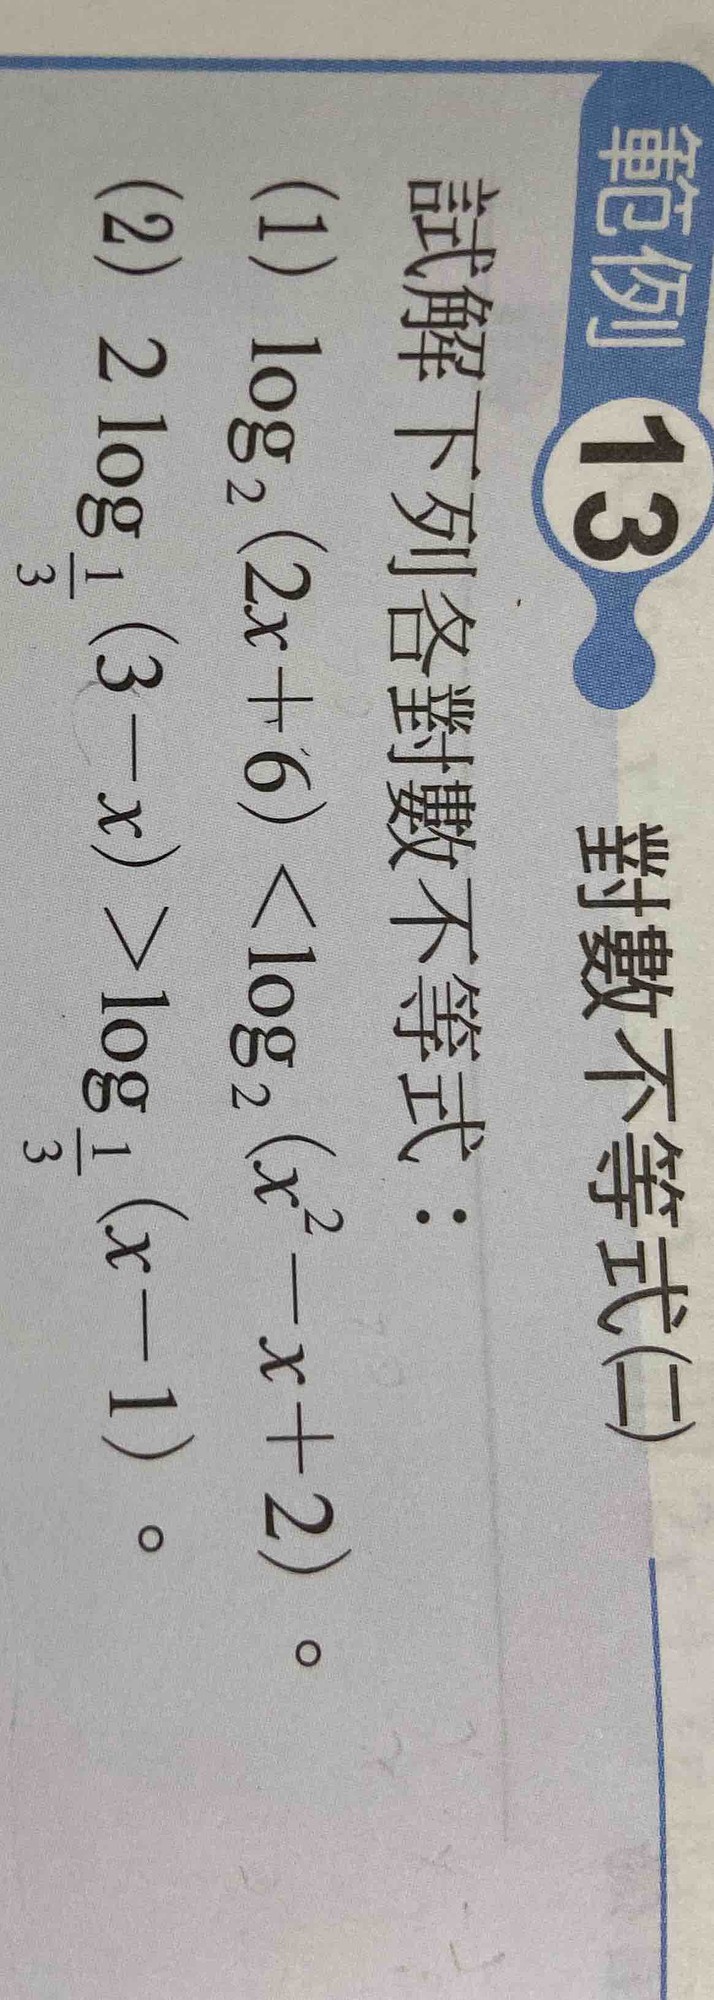 範例 13 對數不等式(二)
試解下列各對數不等式：
(1) log₂(2x+6)<log₂(x²−x+2)。
(2) 2 log_{1/3}(3−x)>log_{1/3}(x−1)。